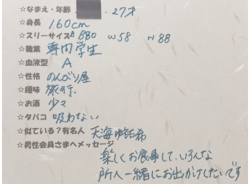 ☆なまえ・年齢 27才
☆身長 160cm
☆スリーサイズ B80 W58 H88
☆職業 専門学生
☆血液型 A
☆性格 のんびり屋
☆趣味 旅行、
☆お酒 少々
☆タバコ 吸わない
☆似ている?有名人 天海祐希
☆男性会員さまへメッセージ
楽しくお食事して、いろんな
所へ一緒にお出かけしたいです